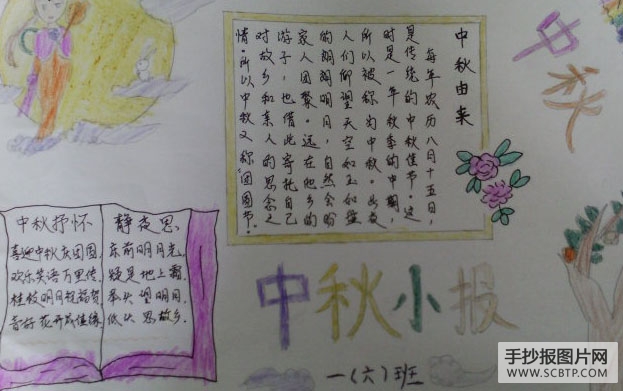 中秋
中秋由来
每年农历八月十五日，
是传统的中秋佳节。这
时是一年秋季的中期，
所以被称为中秋。此夜
人们仰望天空如玉如盘
的朗朗明月，自然会盼
家人团聚。远在他乡的
游子，也借此寄托自己
对故乡和亲人的思念之
情。所以中秋又称“团圆节”。
中秋抒怀
喜迎中秋庆团圆，
欢乐笑语万里传，
桂枝明月祝福贺，
好花开成佳缘
静夜思
床前明月光，
疑是地上霜。
举头望明月，
低头思故乡。
中秋小报
一(六)班
手抄报图片网
WWW.SCBTP.COM